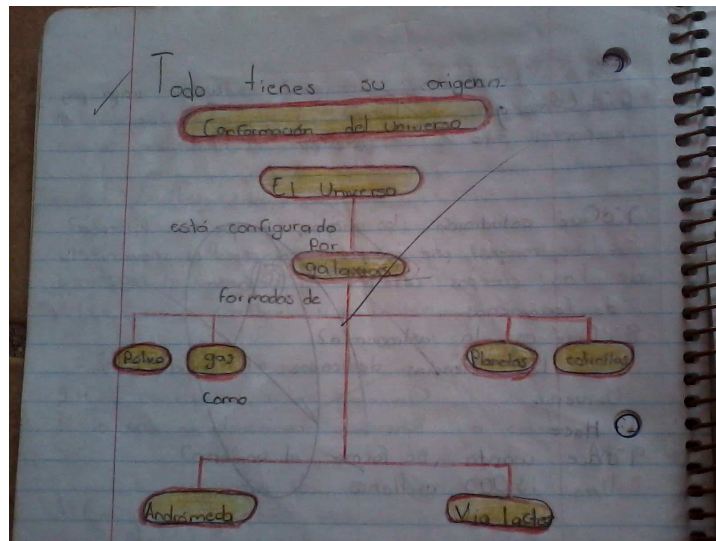 Todo tienes su origenn.
Conformación del Universo
El Universo
está configurado
Por
galaxias
formadas de
Polvo gas Planetas estrellas
Como
Andrómeda Vía Láctea